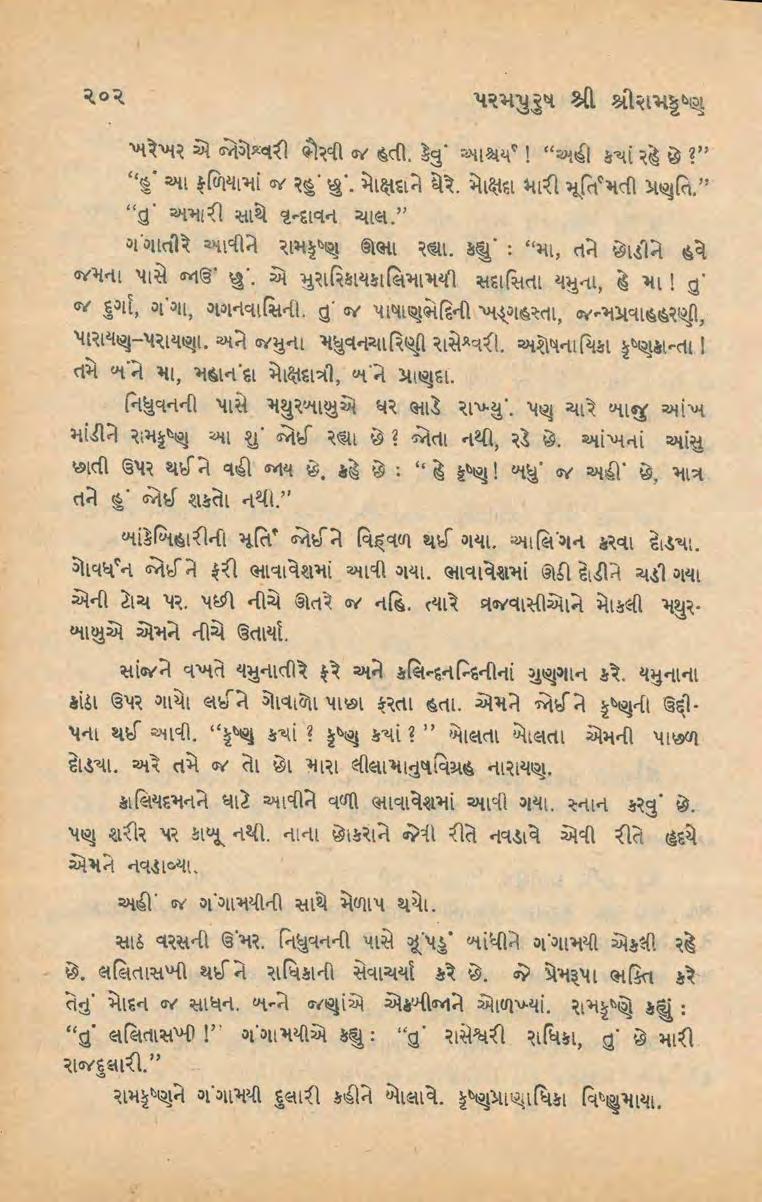 ૨૦૨ પરમપુરુષ શ્રી શ્રીરામકૃષ્ણ
ખરેખર એ જોગેશ્વરી ભૈરવી જ હતી. કેવું આશ્ચર્ય ! “અહીં ક્યાં રહે છે ?”
“હું આ ફળિયામાં જ રહું છું. મોક્ષદાને ઘેરે. મોક્ષદા મારી મૂર્તિમતી પ્રણતિ.”
“તું અમારી સાથે વૃન્દાવન ચાલ.”
ગંગાતીરે આવીને રામકૃષ્ણ ઊભા રહ્યા. કહ્યું : “મા, તને છોડીને હવે
જમના પાસે જાઉં છું. એ મુરારિકાયકાલિમામયી સદાસિતા યમુના, હે મા ! તું
જ દુર્ગા, ગંગા, ગગનવાસિની. તું જ પાષાણભેદિની ખડ્ગહસ્તા, જન્મપ્રવાહહરણી,
પારાયણ–પરાયણા. અને જમુના મધુવનચારિણી રાસેશ્વરી. અશેષનાયિકા કૃષ્ણકાન્તા !
તમે બંને મા, મહાનંદા મોક્ષદાત્રી, બંને પ્રાણદા.
નિધુવનની પાસે મથુરબાબુએ ઘર ભાડે રાખ્યું. પણ ચારે બાજુ આંખ
માંડીને રામકૃષ્ણ આ શું જોઈ રહ્યા છે ? જોતા નથી, રડે છે. આંખનાં આંસુ
છાતી ઉપર થઈને વહી જાય છે. કહે છે : “ હે કૃષ્ણ ! બધું જ અહીં છે, માત્ર
તને હું જોઈ શકતો નથી.”
બાંકેબિહારીની મૂર્તિ જોઈને વિહ્વળ થઈ ગયા. આલિંગન કરવા દોડ્યા.
ગોવર્ધન જોઈને ફરી ભાવાવેશમાં આવી ગયા. ભાવાવેશમાં ઊઠી દોડીને ચડી ગયા
એની ટોચ પર. પછી નીચે ઊતરે જ નહિ. ત્યારે વ્રજવાસીઓને મોકલી મથુર-
બાબુએ એમને નીચે ઉતાર્યા.
સાંજને વખતે યમુનાતીરે ફરે અને કલિન્દનન્દિનીનાં ગુણગાન કરે. યમુનાના
કાંઠા ઉપર ગાયો લઈને ગોવાળો પાછા ફરતા હતા. એમને જોઈને કૃષ્ણની ઉદ્દી-
પના થઈ આવી. “કૃષ્ણ ક્યાં ? કૃષ્ણ ક્યાં ? ” બોલતા બોલતા એમની પાછળ
દોડ્યા. અરે તમે જ તો છો મારા લીલામાનુષવિગ્રહ નારાયણ.
કાલિયદમનને ઘાટે આવીને વળી ભાવાવેશમાં આવી ગયા. સ્નાન કરવું છે.
પણ શરીર પર કાબૂ નથી. નાના છોકરાને જેવી રીતે નવડાવે એવી રીતે હૃદયે
એમને નવડાવ્યા.
અહીં જ ગંગામયીની સાથે મેળાપ થયો.
સાઠ વરસની ઉંમર. નિધુવનની પાસે ઝૂંપડું બાંધીને ગંગામયી એકલી રહે
છે. લલિતાસખી થઈને રાધિકાની સેવાચર્યા કરે છે. જે પ્રેમરૂપા ભક્તિ કરે
તેનું મોદન જ સાધન. બન્ને જણાંએ એકબીજાને ઓળખ્યાં. રામકૃષ્ણે કહ્યું :
“તું લલિતાસખી !” ગંગામયીએ કહ્યું : “તું રાસેશ્વરી રાધિકા, તું છે મારી
રાજદુલારી.”
રામકૃષ્ણને ગંગામયી દુલારી કહીને બોલાવે. કૃષ્ણપ્રાણાધિકા વિષ્ણુમાયા.